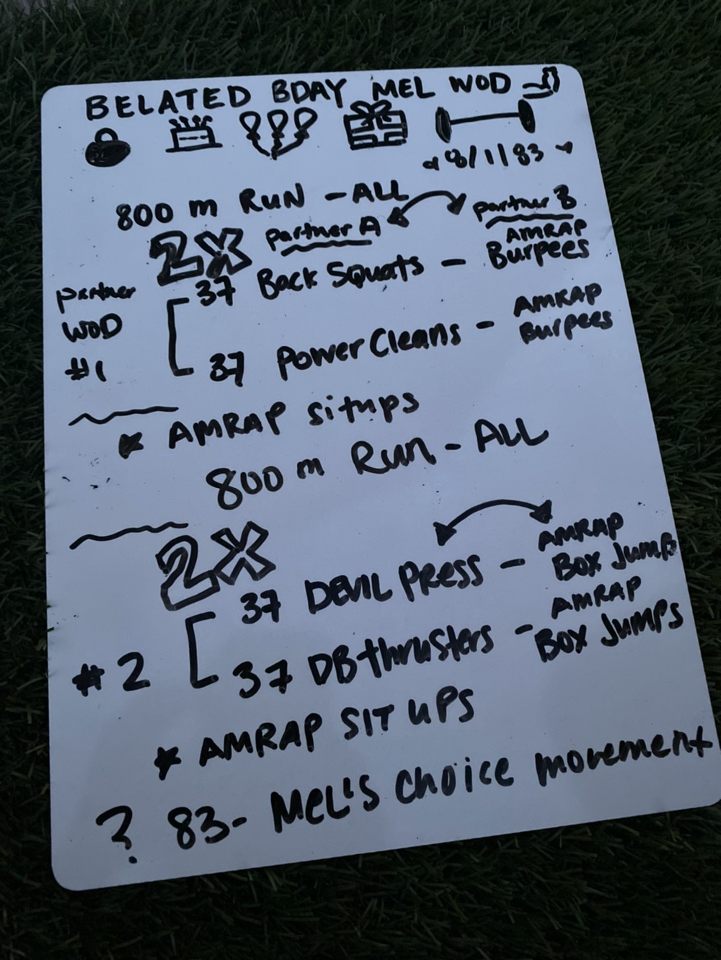 BELATED BDAY MEL WOD
8/1/83
800 m RUN - ALL
2X partner A partner B
37 Back Squats - AMRAP Burpees
partner WOD #1
37 Power Cleans - AMRAP Burpees
* AMRAP situps
800 m Run - ALL
2X
37 DEVIL PRESS - AMRAP BOX JUMP
#2
37 DB thrusters - AMRAP BOX JUMPS
* AMRAP SIT UPS
? 83 - MEL'S choice movement